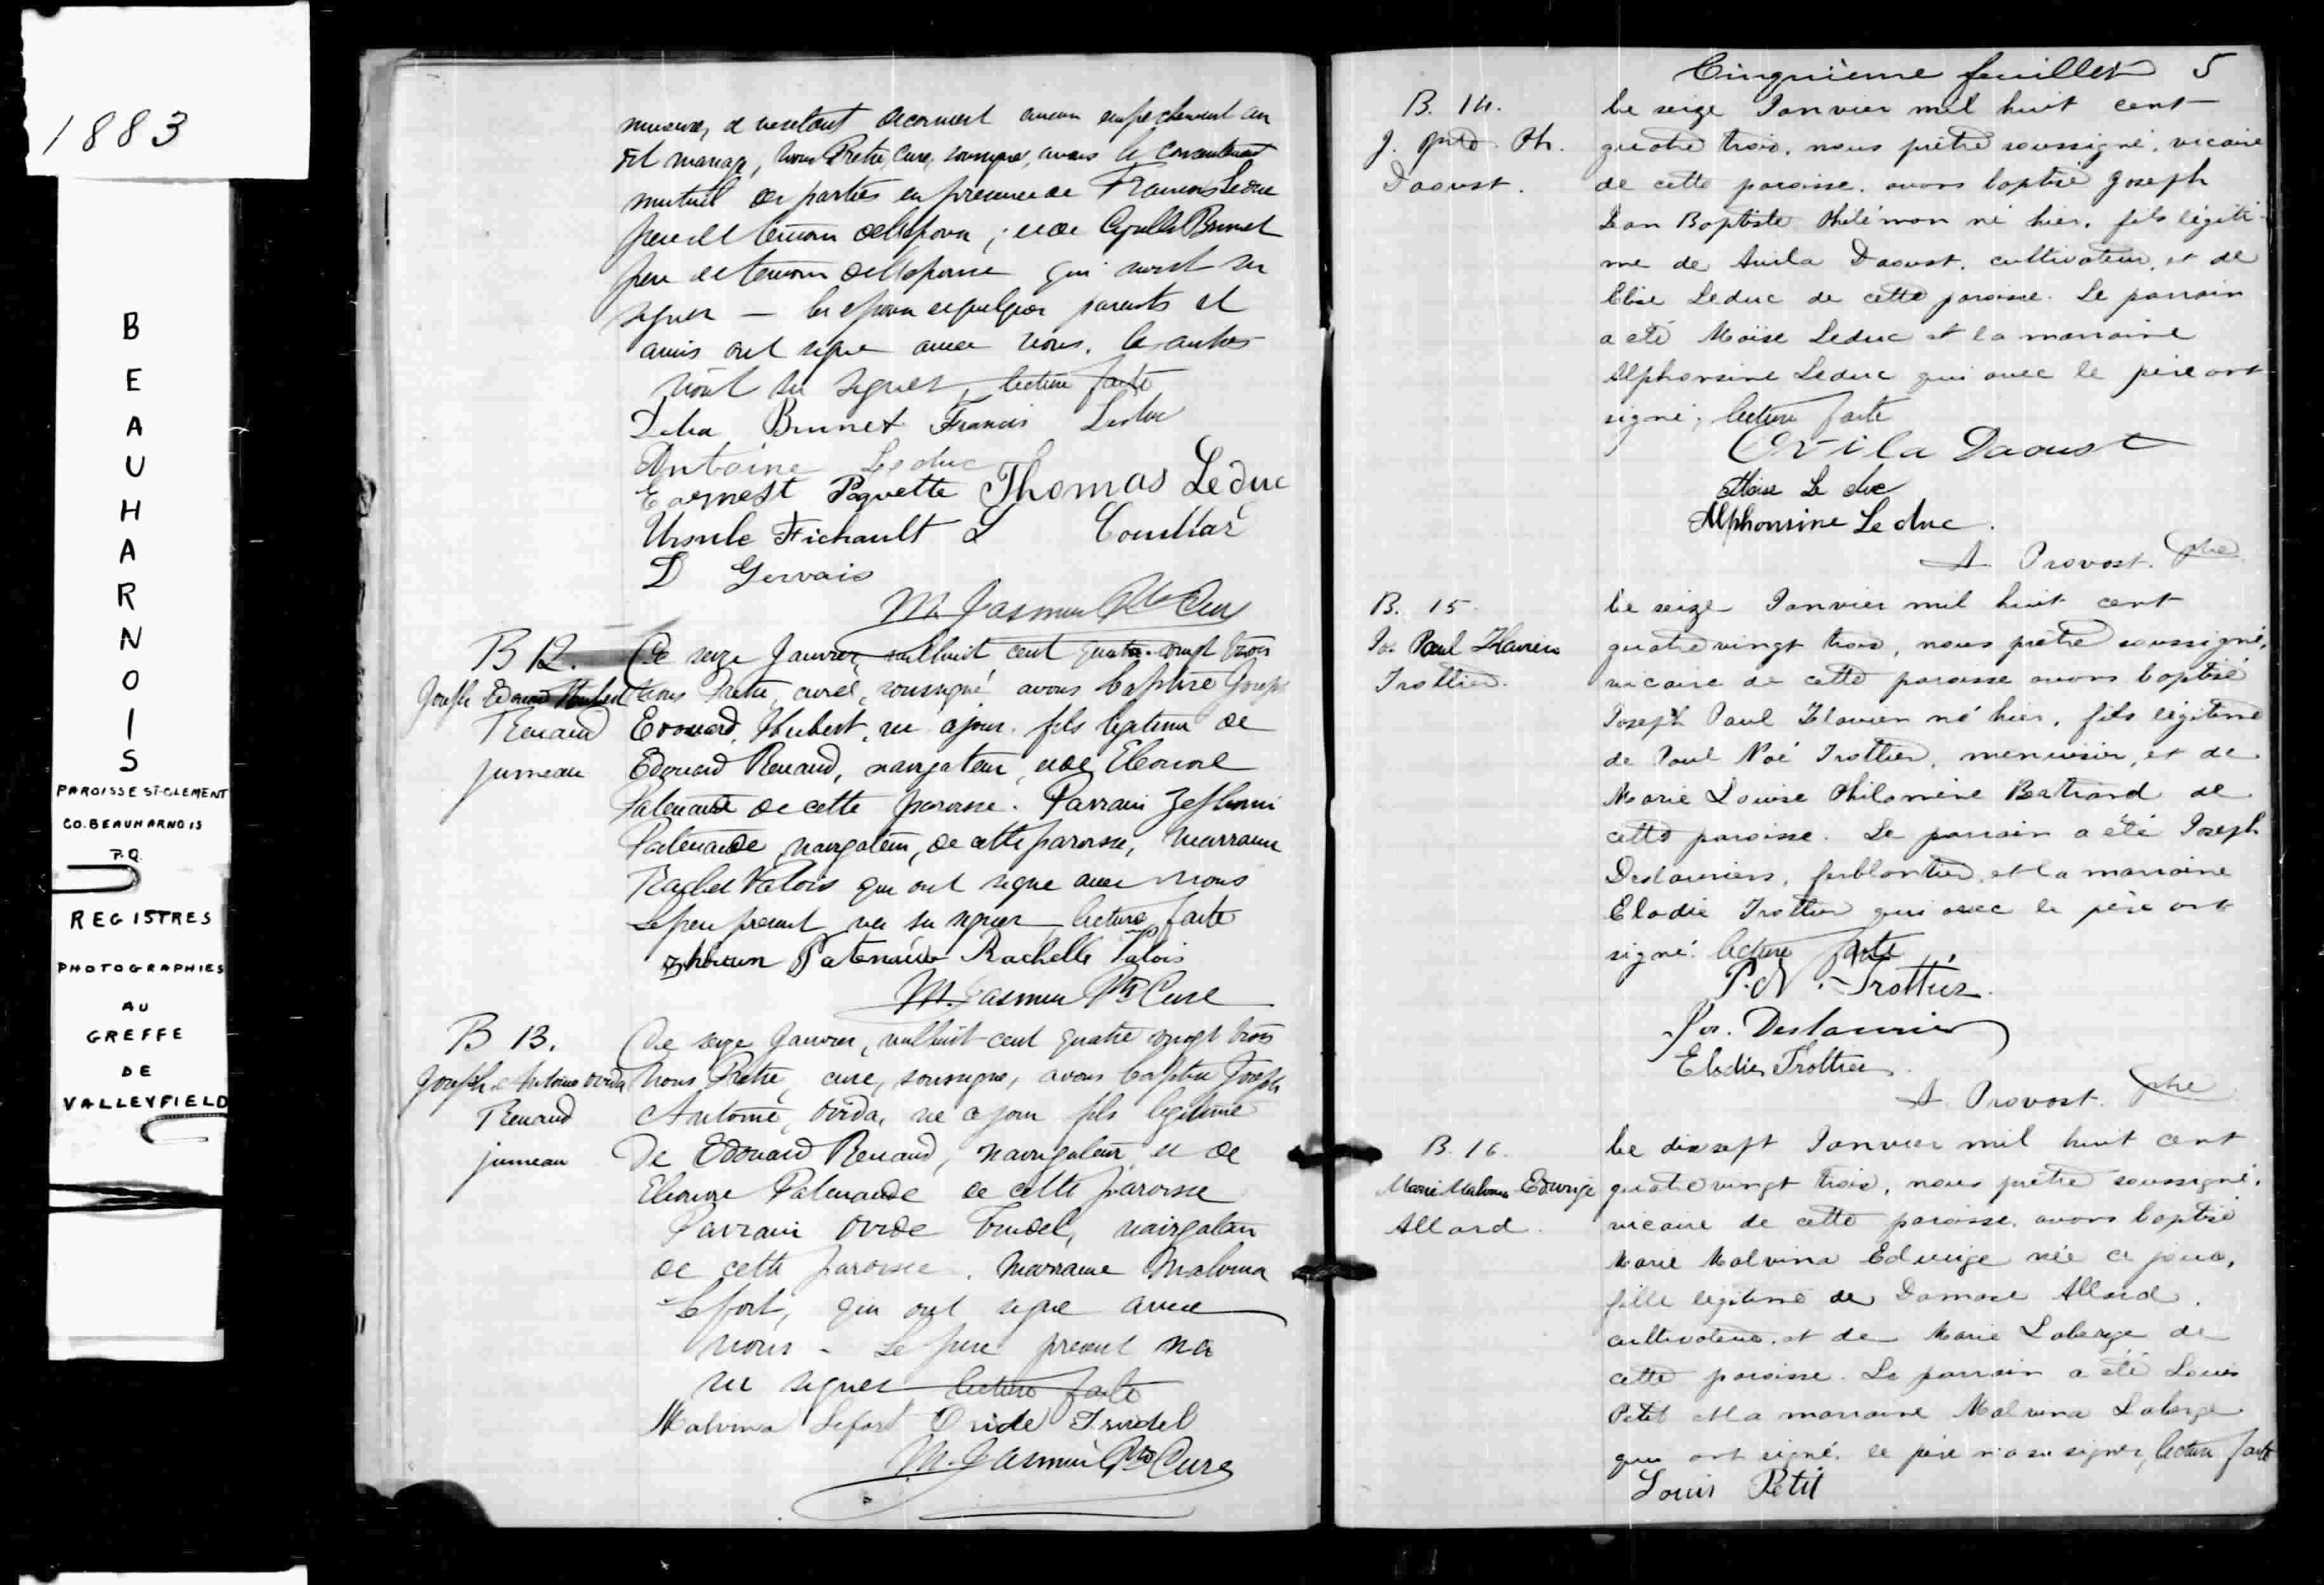 1883
B
E
A
U
H
A
R
N
O
I
S
PAROISSE ST-CLEMENT
CO. BEAUHARNOIS
P.Q.
REGISTRES
PHOTOGRAPHIES
AU
GREFFE
DE
VALLEYFIELD
aucun empechement au
dit mariage, nous Pretre, Curé, soussigné, avons le consentement
mutuel des parties en presence de Francois Leduc
pere et temoin de l'epoux, et de Brunet
pere et temoin de l'epouse qui n'ont su
signer — les epoux et quelques parents et
amis ont signé avec nous. les autres
n'ont su signer, lecture faite
Brunet Francis Leduc
Antoine Leduc
Eornest Paquette Thomas Leduc
Ursule Fichault L
D Gervais
M. Jasmin Ptre Cur
B 12.
Joseph Edouard Hubert
Renaud
jumeau
Ce seize Janvier, mil huit cent quatre-vingt trois
nous Pretre, curé, soussigné avons baptisé Joseph
Edouard, Hubert, né ce jour, fils legitime de
Edouard Renaud, navigateur, et de Eleonore
Patenaude de cette paroisse. Parrain
Patenaude, navigateur, de cette paroisse, marraine
Rachel Valois qui ont signé avec nous
Le pere present n'a su signer, lecture faite
Patenaude Rachelle Valois
M. Jasmin Ptre Curé
B 13.
Joseph Antoine Ovida
Renaud
jumeau
Ce seize Janvier, mil huit cent quatre vingt trois
Nous Pretre, curé, soussigné, avons baptisé Joseph
Antoine, Ovida, né ce jour fils legitime
De Edouard Renaud, navigateur et de
Eleonore Patenaude de cette paroisse
Parrain Ovide Trudel, navigateur
de cette paroisse. Marraine Malvina
Lefort, qui ont signé avec
nous - Le pere present n'a
su signer lecture faite
Malvina Lefort Ovide Trudel
M. Jasmin Ptre Curé
Cinquième feuillet 5
B. 14.
J. Bte Ph.
Daoust.
Le seize Janvier mil huit cent
quatre trois, nous prêtre soussigné, vicaire
de cette paroisse, avons baptisé Joseph
Jean Baptiste Philémon né hier, fils légiti-
me de Avila Daoust, cultivateur, et de
Elise Leduc de cette paroisse. Le parrain
a été Moïse Leduc et la marraine
Alphonsine Leduc qui avec le père ont
signé, lecture faite
Ovila Daoust
Moise Le duc
Alphonsine Le duc.
A. Provost. ptre
B. 15.
Jos Paul Flavien
Trottier.
Le seize Janvier mil huit cent
quatre vingt trois, nous prêtre soussigné,
vicaire de cette paroisse avons baptisé
Joseph Paul Flavien né hier, fils légitime
de Paul Noé Trottier, menuisier, et de
Marie Louise Philomène Bertrand de
cette paroisse. Le parrain a été Joseph
Deslauriers, ferblantier, et la marraine
Elodie Trottier qui avec le père ont
signé. lecture faite
P. N. Trottier.
Jos. Deslaurier
Elodie Trottier.
A. Provost. ptre
B. 16.
Marie Malvina Edwige
Allard.
Le dix sept Janvier mil huit cent
quatre vingt trois, nous prêtre soussigné,
vicaire de cette paroisse, avons baptisé
Marie Malvina Edwige née ce jour,
fille légitime de Damase Allard,
cultivateur, et de Marie Laberge de
cette paroisse. Le parrain a été Louis
Petit et la marraine Malvina Laberge
qui ont signé. le père n'a su signer, lecture faite
Louis Petit